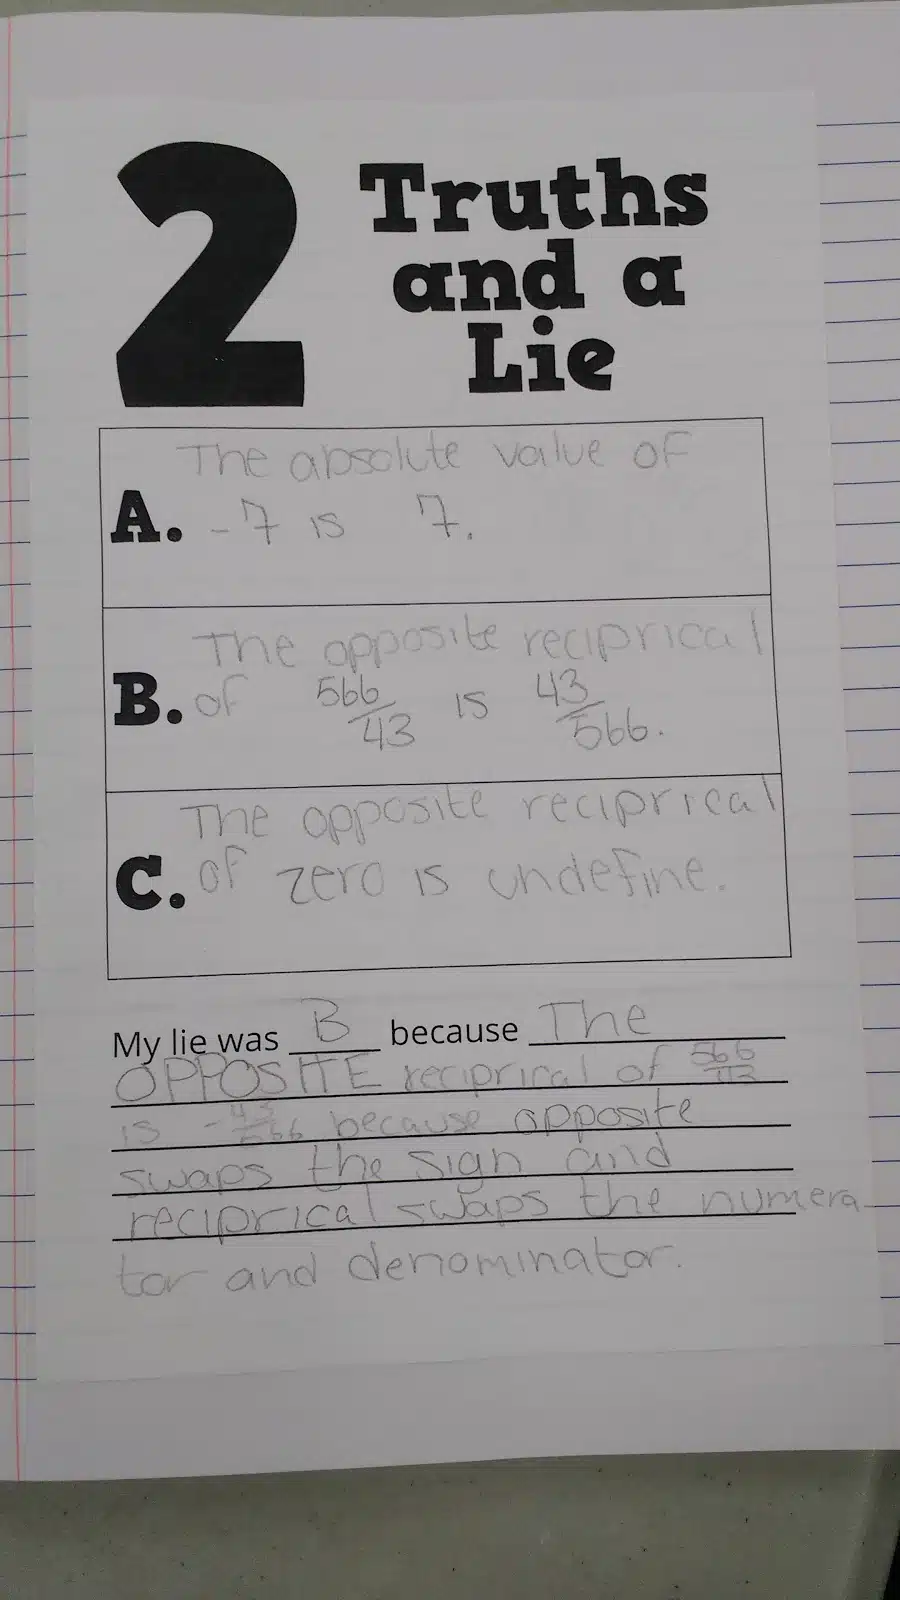 2 Truths
and a
Lie
The absolute value of
A. -7 is 7.
The opposite reciprical
B. of 566/43 is 43/566.
The opposite reciprical
C. of zero is undefine.
My lie was B because The
OPPOSITE reciprical of 566/43
is -43/566 because opposite
swaps the sign and
reciprical swaps the numera
tor and denominator.